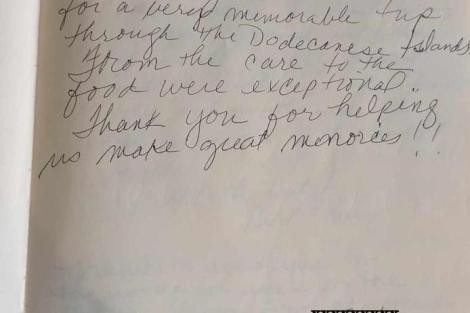 for a very memorable trip
through The Dodecanese Islands
From the care to the
food were exceptional.
Thank you for helping
us make great memories!!